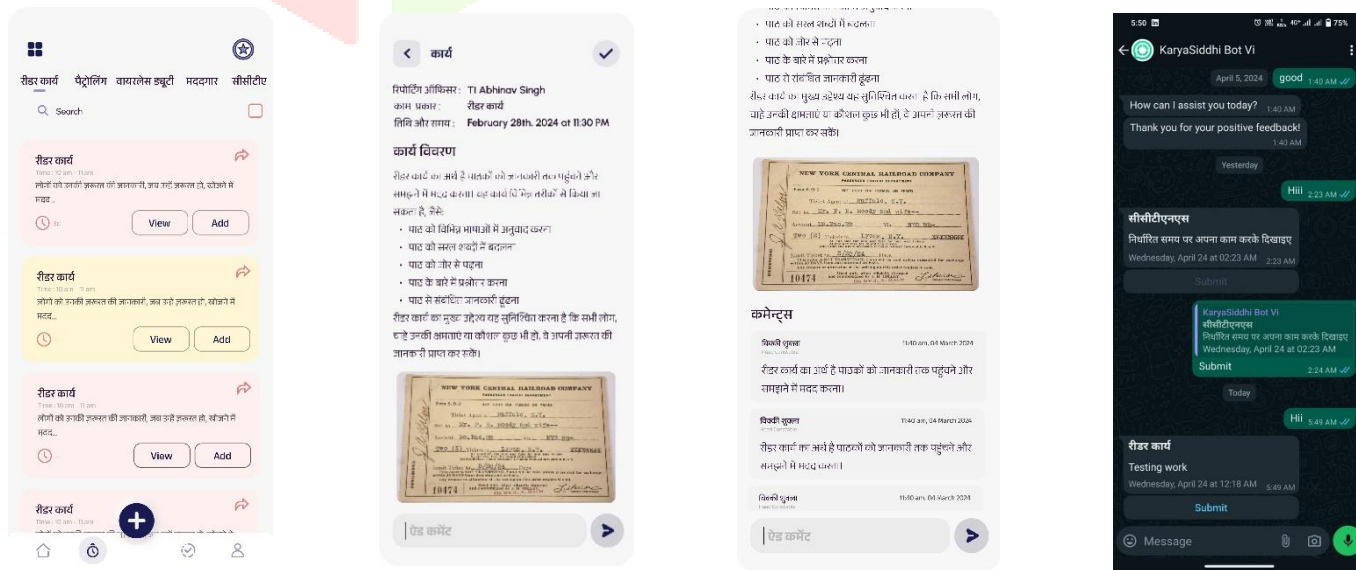 रीडर कार्य पैट्रोलिंग वायरलेस ड्यूटी मददगार सीसीटीए
Search
रीडर कार्य
Time: 10 am - 11 am
लोगों को उनकी ज़रूरत की जानकारी, जब उन्हें ज़रूरत हो, खोजने में
मदद...
View Add
रीडर कार्य
Time: 10 am 11 am
लोगों को उनकी ज़रूरत की जानकारी, जब उन्हें ज़रूरत हो, खोजने में
मदद...
View Add
रीडर कार्य
Time: 10 am 11 am
लोगों को उनकी ज़रूरत की जानकारी, जब उन्हें ज़रूरत हो, खोजने में
मदद...
View Add
रीडर कार्य
Time: 10 am - 11 am
कार्य
रिपोर्टिंग ऑफिसर: TI Abhinav Singh
काम प्रकार: रीडर कार्य
तिथि और समय: February 28th. 2024 at 11:30 PM
कार्य विवरण
रीडर कार्य का अर्थ है पाठकों को जानकारी तक पहुंचने और
समझने में मदद करना। यह कार्य विभिन्न तरीकों से किया जा
सकता है, जैसे:
• पाठ को विभिन्न भाषाओं में अनुवाद करना
• पाठ को सरल शब्दों में बदलना
• पाठ को जोर से पढ़ना
• पाठ के बारे में प्रश्नोत्तर करना
• पाठ से संबंधित जानकारी ढूंढना
रीडर कार्य का मुख्य उद्देश्य यह सुनिश्चित करना है कि सभी लोग,
चाहे उनकी क्षमताएं या कौशल कुछ भी हों, वे अपनी ज़रूरत की
जानकारी प्राप्त कर सकें।
NEW YORK CENTRAL RAILROAD COMPANY
Buffalo, N.Y.
Mr. F. R. Moody and wife
Two (2) Lyons, N.Y.
10474
ऐड कमेंट
• पाठ को सरल शब्दों में बदलना
• पाठ को जोर से पढ़ना
• पाठ के बारे में प्रश्नोत्तर करना
• पाठ से संबंधित जानकारी ढूंढना
रीडर कार्य का मुख्य उद्देश्य यह सुनिश्चित करना है कि सभी लोग,
चाहे उनकी क्षमताएं या कौशल कुछ भी हों, वे अपनी ज़रूरत की
जानकारी प्राप्त कर सकें।
NEW YORK CENTRAL RAILROAD COMPANY
Buffalo, N.Y.
Mr. F. R. Moody and wife
Two (2) Lyons, N.Y.
10474
कमेन्ट्स
विक्की शुक्ला 11:40 am, 04 March 2024
Head Constable
रीडर कार्य का अर्थ है पाठकों को जानकारी तक पहुंचने और
समझने में मदद करना।
विक्की शुक्ला 11:40 am, 04 March 2024
Head Constable
रीडर कार्य का अर्थ है पाठकों को जानकारी तक पहुंचने और
समझने में मदद करना।
विक्की शुक्ला 11:40 am, 04 March 2024
Head Constable
ऐड कमेंट
5:50 75%
KaryaSiddhi Bot Vi
April 5, 2024
good 1:40 AM
How can I assist you today? 1:40 AM
Thank you for your positive feedback!
1:40 AM
Yesterday
Hiii 2:23 AM
सीसीटीएनएस
निर्धारित समय पर अपना काम करके दिखाइए
Wednesday, April 24 at 02:23 AM 2:23 AM
Submit
KaryaSiddhi Bot Vi
सीसीटीएनएस
निर्धारित समय पर अपना काम करके दिखाइए
Wednesday, April 24 at 02:23 AM
Submit 2:24 AM
Today
Hii 5:49 AM
रीडर कार्य
Testing work
Wednesday, April 24 at 12:18 AM 5:49 AM
Submit
Message